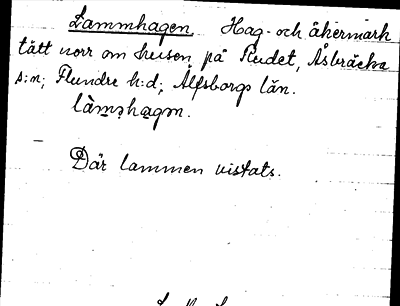 Lammhagen Hag- och åkermark
tätt norr om husen på Rudet, Åsbräcka
s:n; Flundre h:d; Älfsborgs län.
làmshagən.
Där lammen vistats.